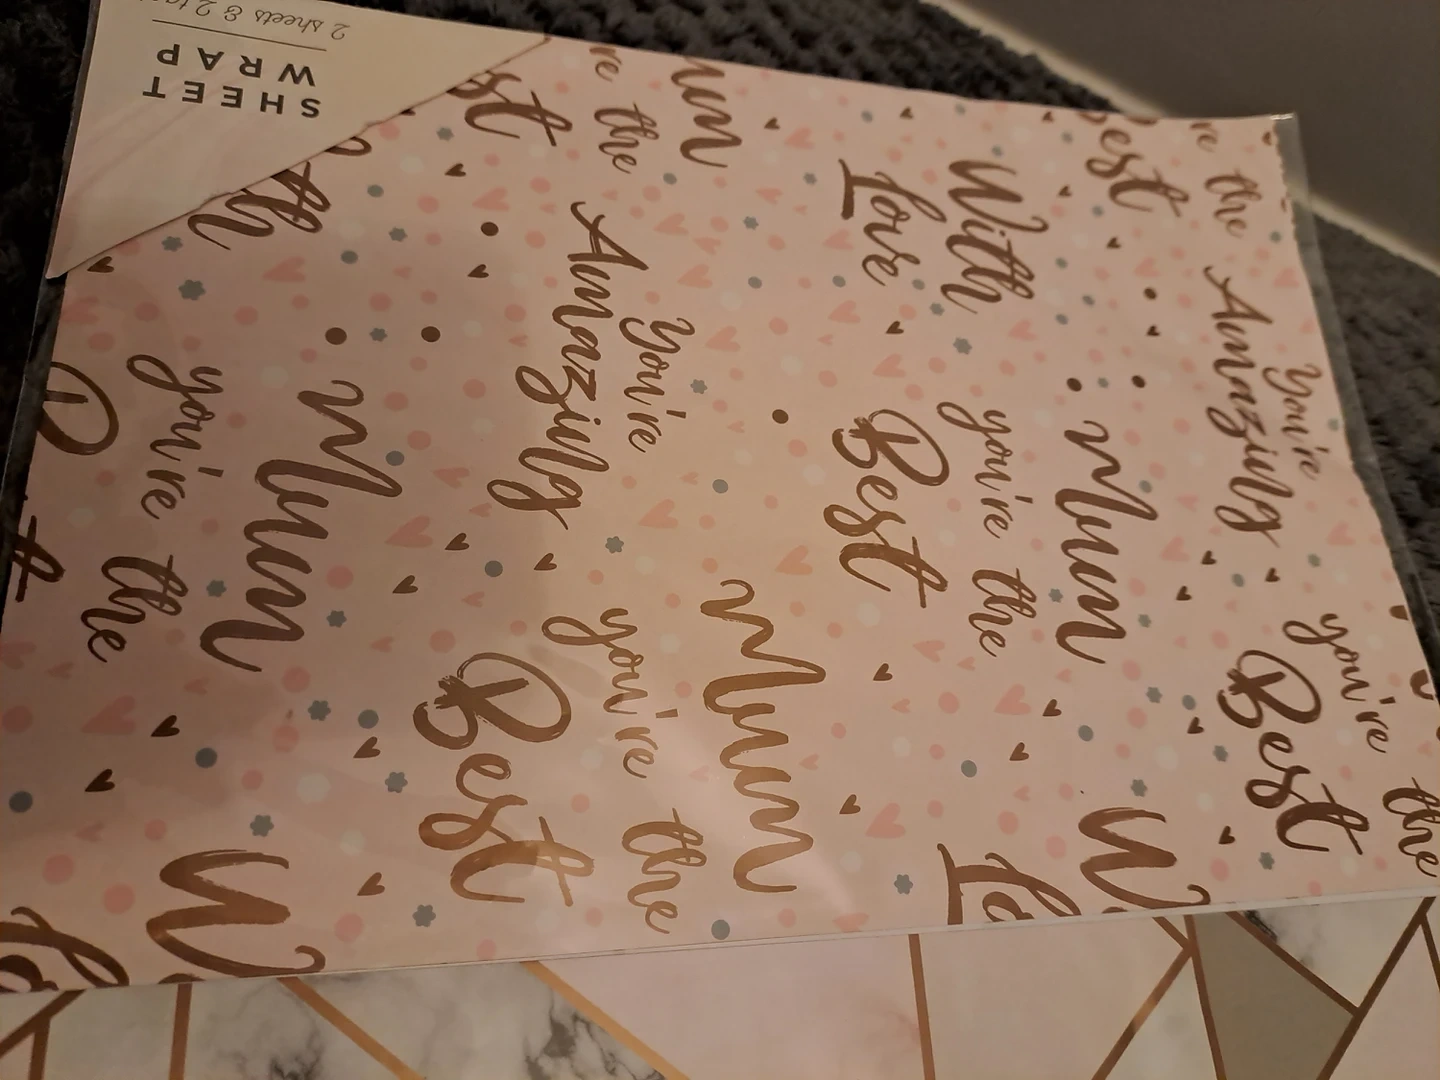 SHEET
WRAP
2 sheets & 2
re the
Mum
Best
re the
You're
Amazing
you're the
Best
Mum
With
Love
you're the
Best
Mum
You're
Amazing
you're the
Best
Mum
you're the